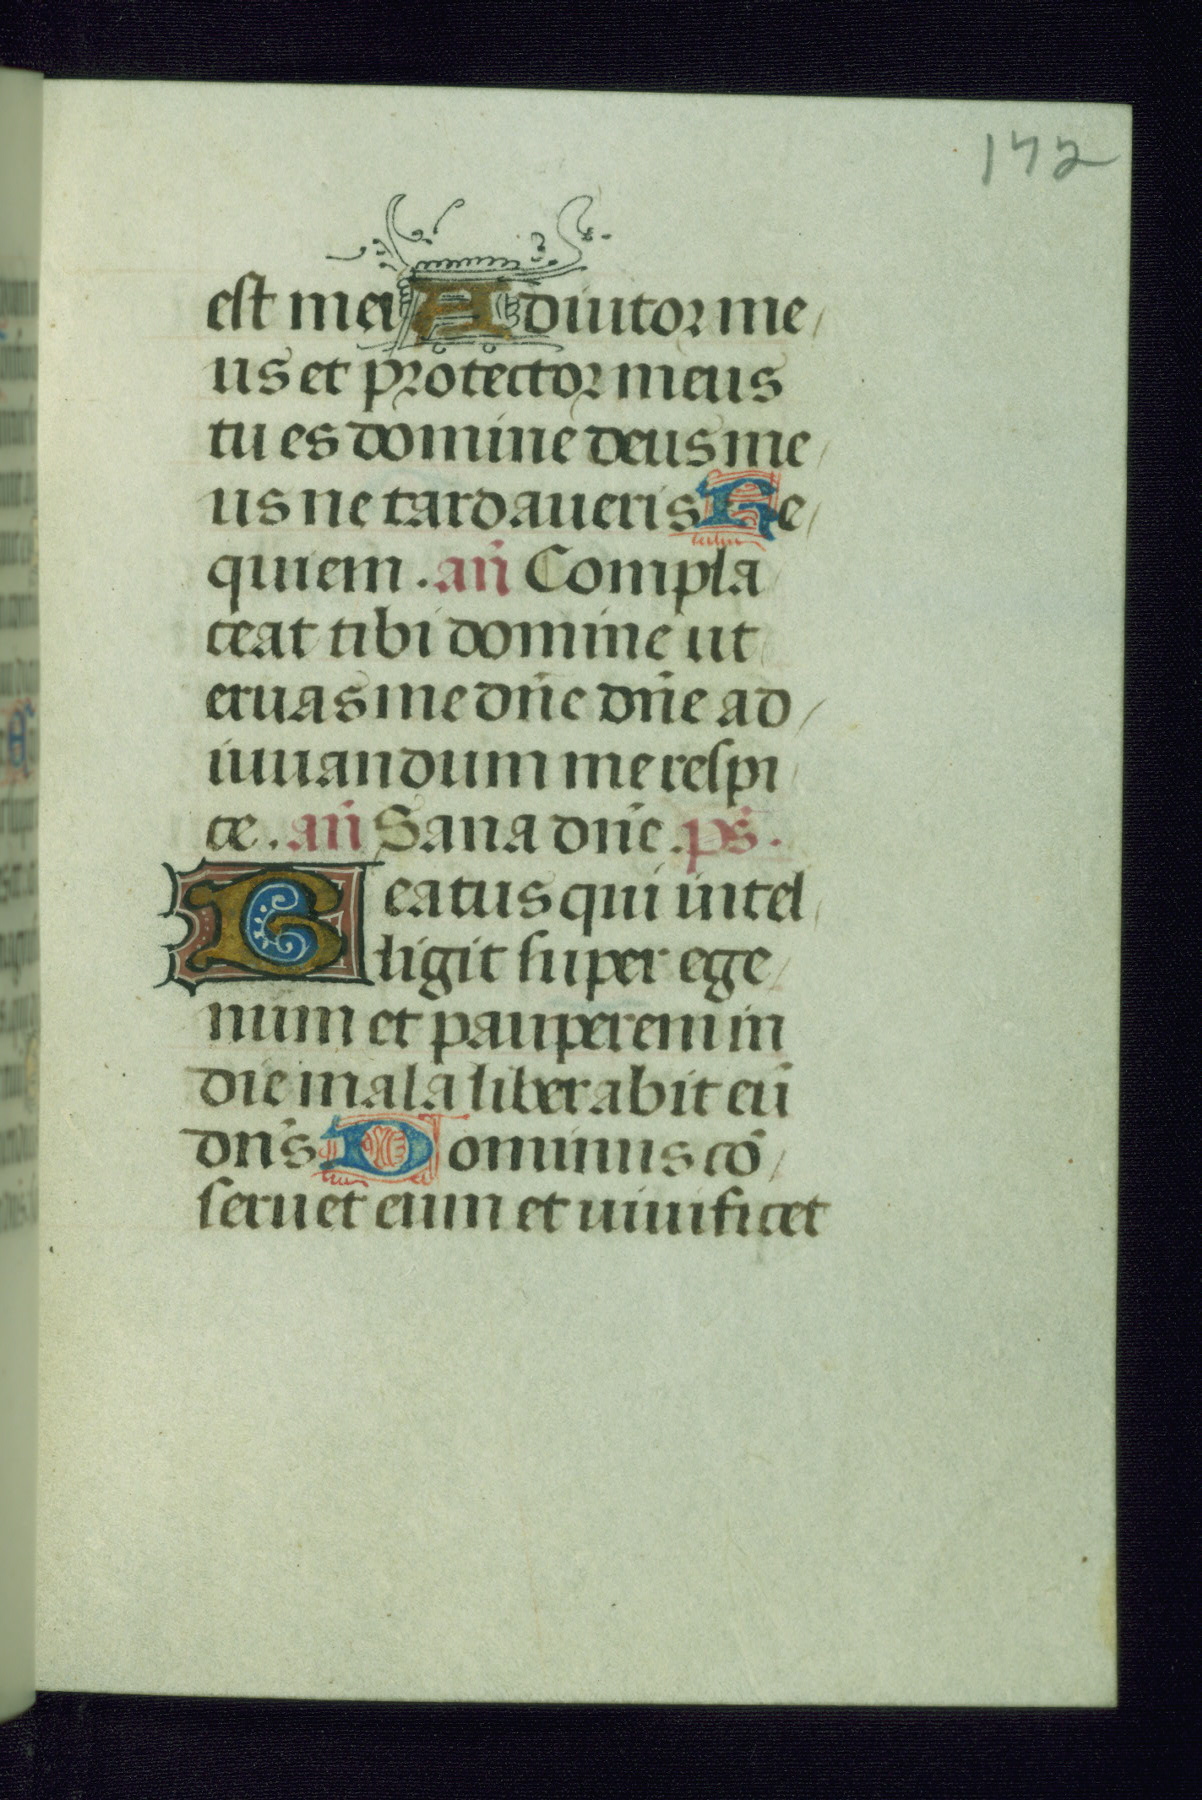 172
est mei Adiutor me
us et protector meus
tu es domine deus me
us ne tardaueris Re
quiem . an̄ Compla
ceat tibi domine ut
eruas me dn̄e dn̄e ad
iuuandum me respi
ce . an̄ Sana dn̄e . ps̄ .
Beatus qui intel
ligit super ege
num et pauperem in
die mala liberabit eū
dn̄s Dominus cō
seruet eum et uiuificet